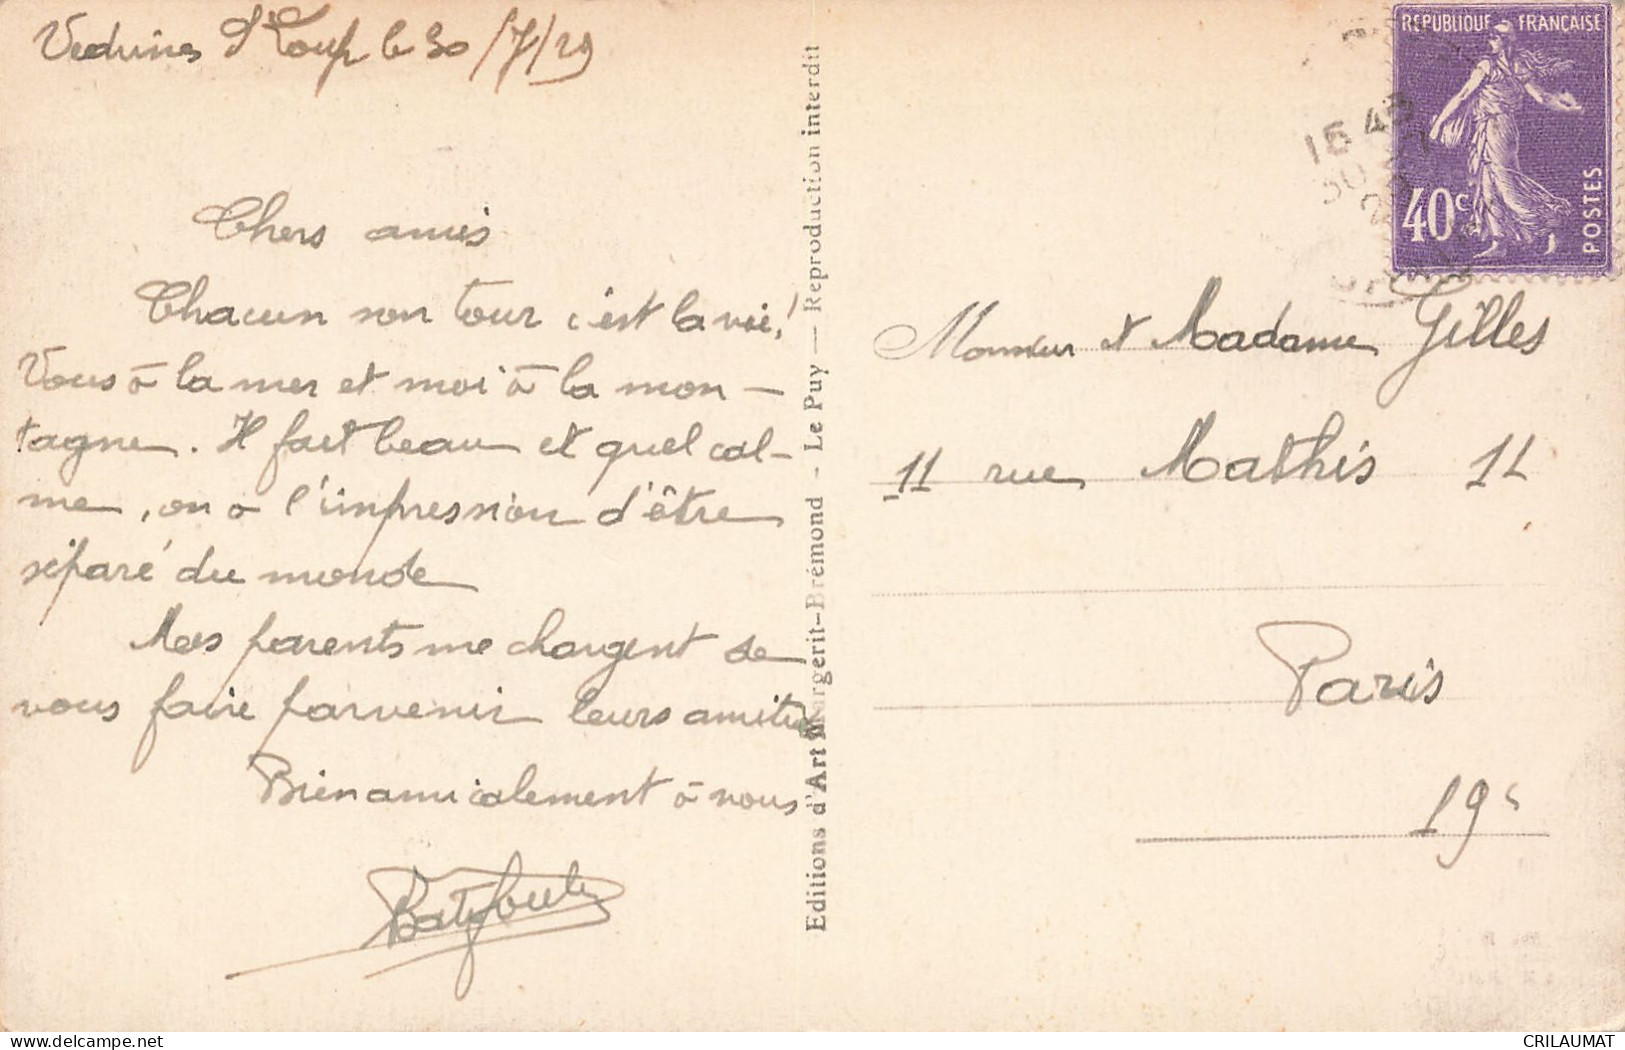 Vedrines St Loup le 30/7/29
Chers amis
Chacun son tour c'est la vie!
Vous à la mer et moi à la mon-
tagne. Il fait beau et quel cal-
me, on a l'impression d'être
séparé du monde
Mes parents me chargent de
vous faire parvenir leurs amitiés
Bien amicalement à vous
Editions d'Art Margerit-Brémond - Le Puy — Reproduction interdit
REPUBLIQUE FRANÇAISE
40c
POSTES
15 45
30
Monsieur et Madame Gilles
11 rue Mathis 11
Paris
19e
delcampe.net
CRILAUMAT